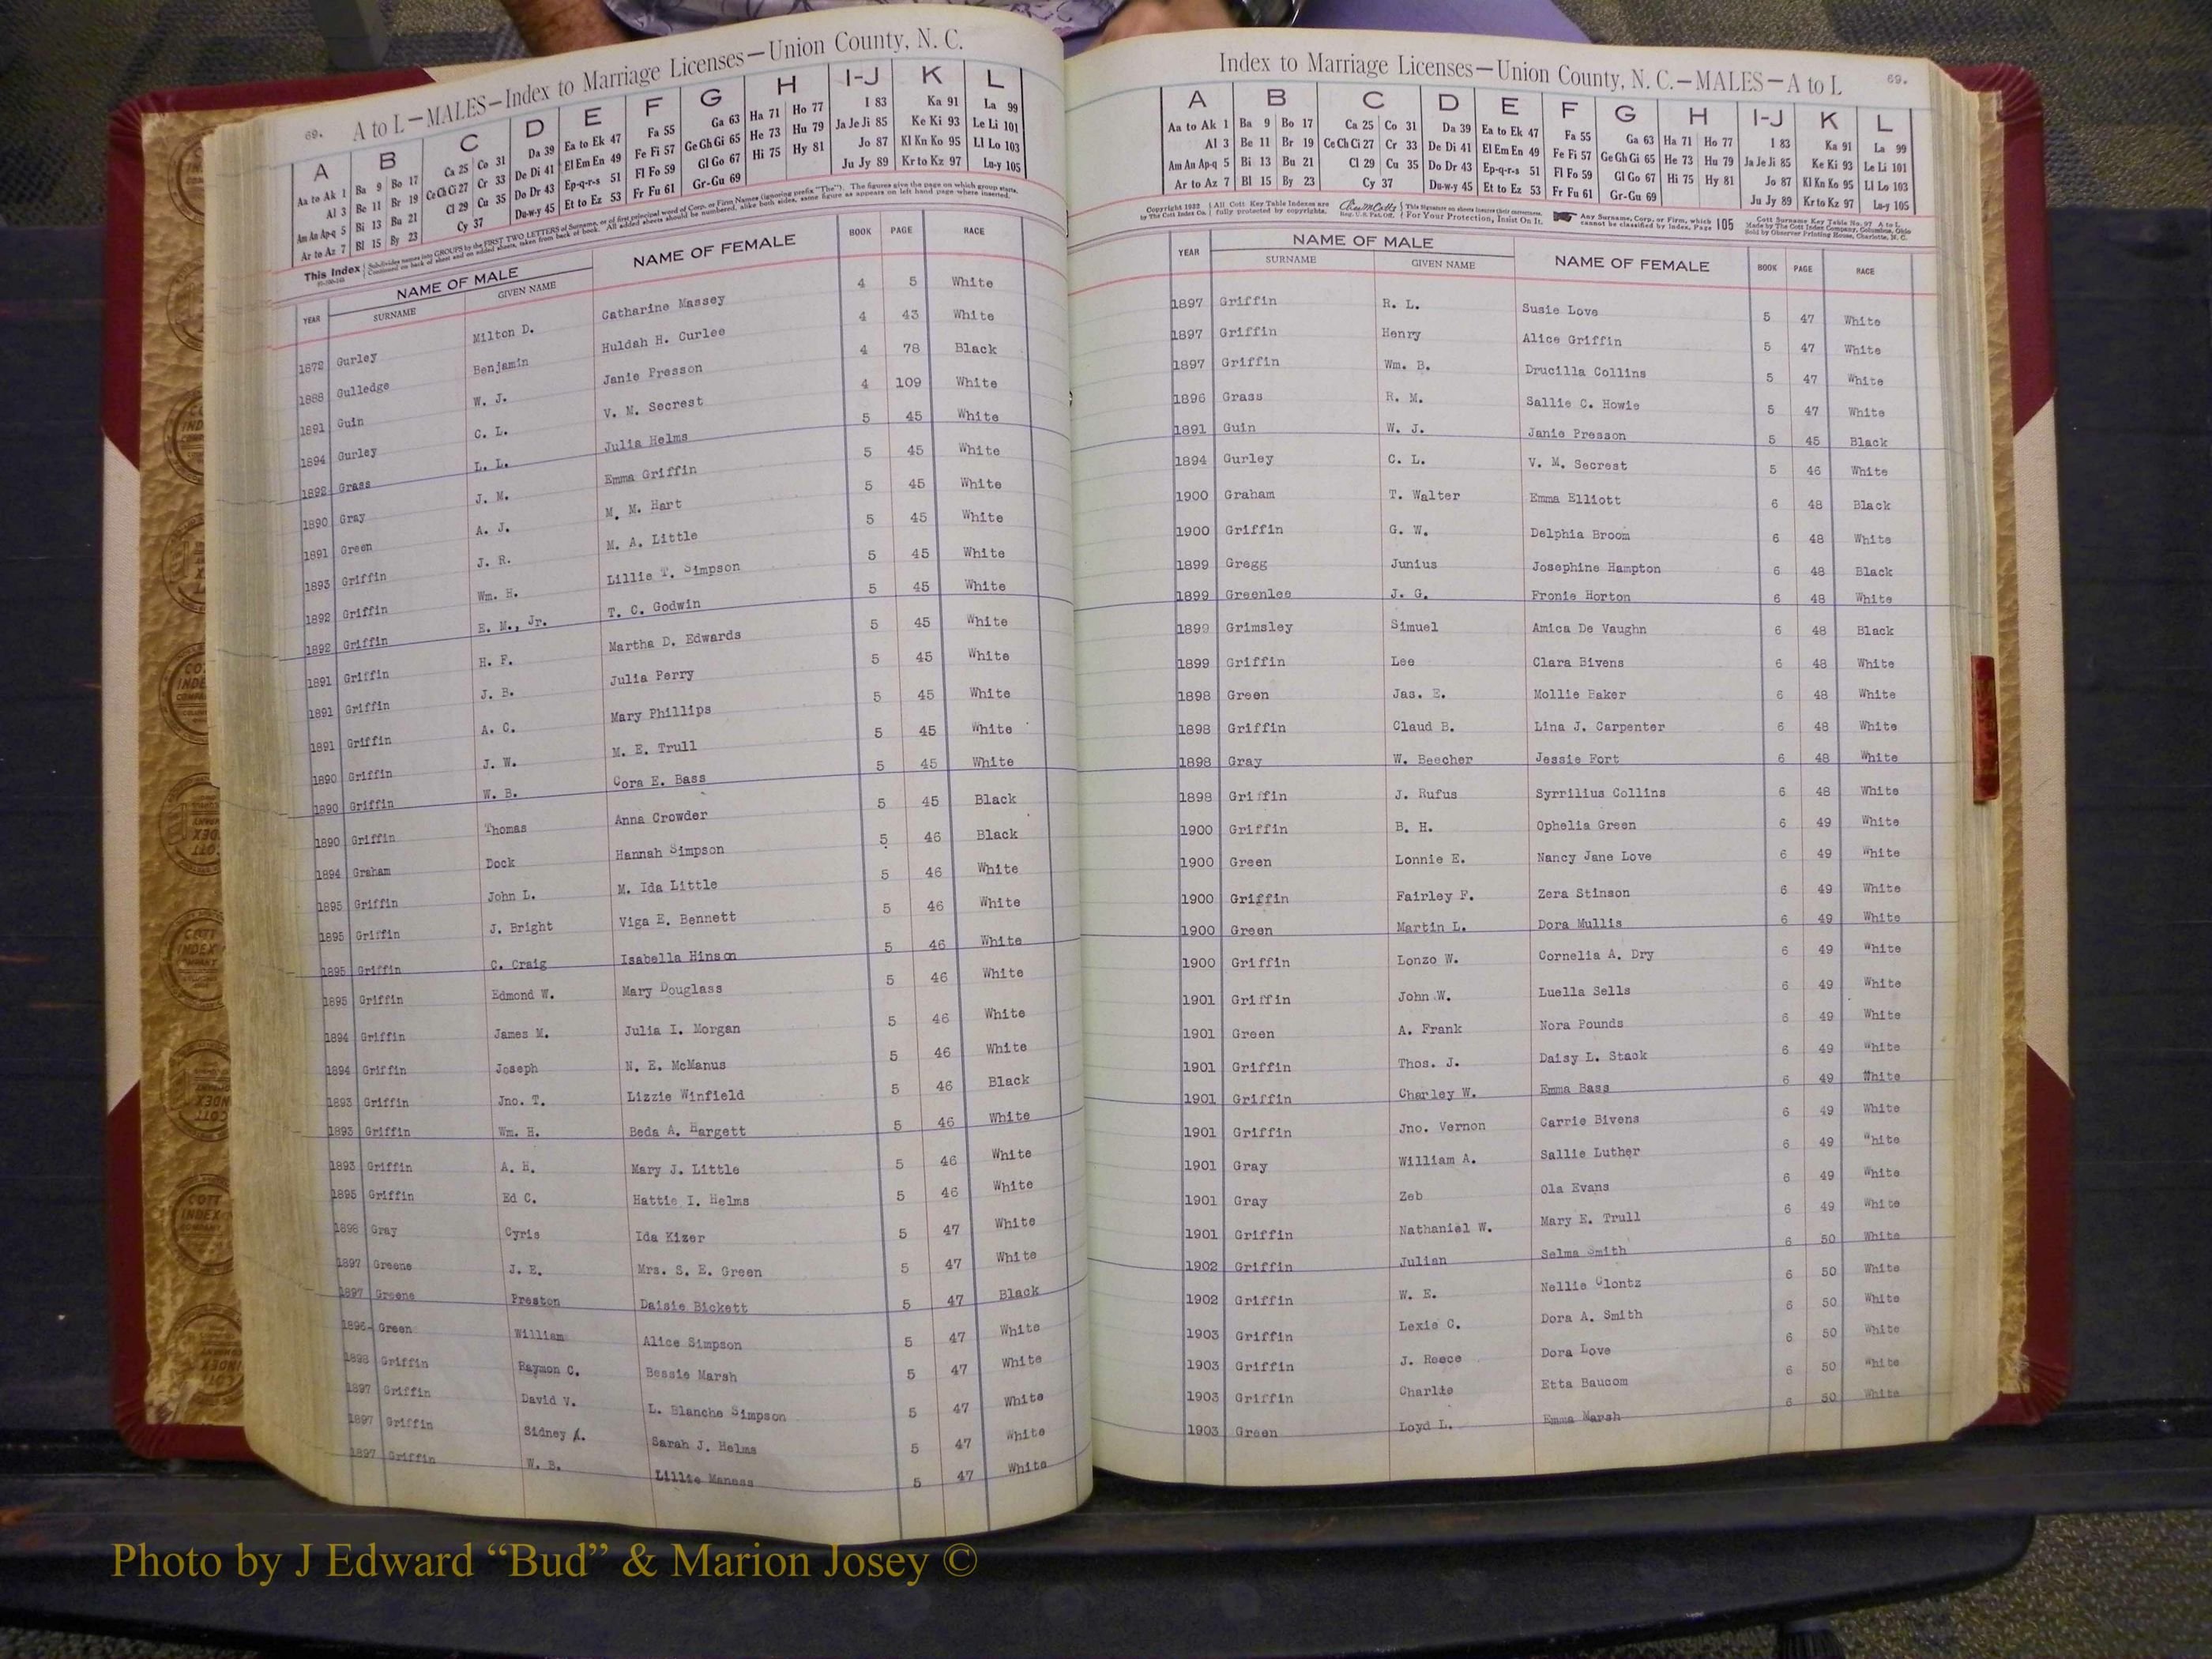 69. A to L — MALES — Index to Marriage Licenses — Union County, N. C.
A B C D E F G H I-J K L
Aa to Ak 1 Ba 9 Bo 17 Ca 25 Co 31 Da 39 Ea to Ek 47 Fa 55 Ga 63 Ha 71 Ho 77 I 83 Ka 91 La 99
Al 3 Be 11 Br 19 Ce Ch Ci 27 Cr 33 De Di 41 El Em En 49 Fe Fi 57 Ge Gh Gi 65 He 73 Hu 79 Ja Je Ji 85 Ke Ki 93 Le Li 101
Am An Ap-q 5 Bi 13 Bu 21 Cl 29 Cu 35 Do Dr 43 Ep-q-r-s 51 Fl Fo 59 Gl Go 67 Hi 75 Hy 81 Jo 87 Kl Kn Ko 95 Ll Lo 103
Ar to Az 7 Bl 15 By 23 Cy 37 Du-w-y 45 Et to Ez 53 Fr Fu 61 Gr-Gu 69 Ju Jy 89 Kr to Kz 97 Lu-y 105
This Index Subdivides names into GROUPS by the FIRST TWO LETTERS of Surname, or of first principal word of Corp. or Firm Names (ignoring prefix "The"). The figures give the page on which group starts.
Continued on back of sheet and on added sheets, taken from back of book. All added sheets should be numbered, alike both sides, same figure as appears on left hand page where inserted.
YEAR NAME OF MALE SURNAME GIVEN NAME NAME OF FEMALE BOOK PAGE RACE
1872 Gurley Milton D. Catharine Massey 4 5 White
1888 Gulledge Benjamin Huldah H. Curlee 4 43 White
1891 Guin W. J. Janie Presson 4 78 Black
1894 Gurley C. L. V. M. Secrest 4 109 White
1892 Grass L. L. Julia Helms 5 45 White
1890 Gray J. M. Emma Griffin 5 45 White
1891 Green A. J. M. M. Hart 5 45 White
1893 Griffin J. R. M. A. Little 5 45 White
1892 Griffin Wm. H. Lillie T. Simpson 5 45 White
1892 Griffin E. M., Jr. T. C. Godwin 5 45 White
1891 Griffin H. F. Martha D. Edwards 5 45 White
1891 Griffin J. B. Julia Perry 5 45 White
1891 Griffin A. C. Mary Phillips 5 45 White
1890 Griffin J. W. M. E. Trull 5 45 White
1890 Griffin W. B. Cora E. Bass 5 45 White
1890 Griffin Thomas Anna Crowder 5 45 Black
1894 Graham Dock Hannah Simpson 5 46 Black
1895 Griffin John L. M. Ida Little 5 46 White
1895 Griffin J. Bright Viga E. Bennett 5 46 White
1895 Griffin C. Craig Isabella Hinson 5 46 White
1895 Griffin Edmond W. Mary Douglass 5 46 White
1894 Griffin James M. Julia I. Morgan 5 46 White
1894 Griffin Joseph N. E. McManus 5 46 White
1893 Griffin Jno. T. Lizzie Winfield 5 46 Black
1893 Griffin Wm. H. Beda A. Hargett 5 46 White
1893 Griffin A. H. Mary J. Little 5 46 White
1895 Griffin Ed C. Hattie I. Helms 5 46 White
1898 Gray Cyris Ida Kizer 5 47 White
1897 Greene J. E. Mrs. S. E. Green 5 47 White
1897 Greene Preston Daisie Bickett 5 47 Black
1896 Green William Alice Simpson 5 47 White
1898 Griffin Raymon C. Bessie Marsh 5 47 White
1897 Griffin David V. L. Blanche Simpson 5 47 White
1897 Griffin Sidney A. Sarah J. Helms 5 47 White
1897 Griffin W. B. Lillie Maness 5 47 White
Index to Marriage Licenses — Union County, N. C. — MALES — A to L 69.
A B C D E F G H I-J K L
Aa to Ak 1 Ba 9 Bo 17 Ca 25 Co 31 Da 39 Ea to Ek 47 Fa 55 Ga 63 Ha 71 Ho 77 I 83 Ka 91 La 99
Al 3 Be 11 Br 19 Ce Ch Ci 27 Cr 33 De Di 41 El Em En 49 Fe Fi 57 Ge Gh Gi 65 He 73 Hu 79 Ja Je Ji 85 Ke Ki 93 Le Li 101
Am An Ap-q 5 Bi 13 Bu 21 Cl 29 Cu 35 Do Dr 43 Ep-q-r-s 51 Fl Fo 59 Gl Go 67 Hi 75 Hy 81 Jo 87 Kl Kn Ko 95 Ll Lo 103
Ar to Az 7 Bl 15 By 23 Cy 37 Du-w-y 45 Et to Ez 53 Fr Fu 61 Gr-Gu 69 Ju Jy 89 Kr to Kz 97 Lu-y 105
Copyright 1922 by The Cott Index Co. All Cott Key Table Indexes are fully protected by copyrights. Reg. U.S. Pat. Off. This Signature on sheets insures their correctness. For Your Protection, Insist On It. Any Surname, Corp. or Firm, which cannot be classified by Index, Page 105 Cott Surname Key Table No. 97 A to L Made by The Cott Index Company, Columbus, Ohio Sold by Observer Printing House, Charlotte, N. C.
YEAR NAME OF MALE SURNAME GIVEN NAME NAME OF FEMALE BOOK PAGE RACE
1897 Griffin R. L. Susie Love 5 47 White
1897 Griffin Henry Alice Griffin 5 47 White
1897 Griffin Wm. B. Drucilla Collins 5 47 White
1896 Grass R. M. Sallie C. Howie 5 47 White
1891 Guin W. J. Janie Presson 5 45 Black
1894 Gurley C. L. V. M. Secrest 5 46 White
1900 Graham T. Walter Emma Elliott 6 48 Black
1900 Griffin G. W. Delphia Broom 6 48 White
1899 Gregg Junius Josephine Hampton 6 48 Black
1899 Greenlee J. G. Fronie Horton 6 48 White
1899 Grimsley Simuel Amica De Vaughn 6 48 Black
1899 Griffin Lee Clara Bivens 6 48 White
1898 Green Jas. E. Mollie Baker 6 48 White
1898 Griffin Claud B. Lina J. Carpenter 6 48 White
1898 Gray W. Beecher Jessie Fort 6 48 White
1898 Griffin J. Rufus Syrrilius Collins 6 48 White
1900 Griffin B. H. Ophelia Green 6 49 White
1900 Green Lonnie E. Nancy Jane Love 6 49 White
1900 Griffin Fairley F. Zera Stinson 6 49 White
1900 Green Martin L. Dora Mullis 6 49 White
1900 Griffin Lonzo W. Cornelia A. Dry 6 49 White
1901 Griffin John W. Luella Sells 6 49 White
1901 Green A. Frank Nora Pounds 6 49 White
1901 Griffin Thos. J. Daisy L. Stack 6 49 White
1901 Griffin Charley W. Emma Bass 6 49 White
1901 Griffin Jno. Vernon Carrie Bivens 6 49 White
1901 Gray William A. Sallie Luther 6 49 White
1901 Gray Zeb Ola Evans 6 49 White
1901 Griffin Nathaniel W. Mary E. Trull 6 49 White
1902 Griffin Julian Selma Smith 6 50 White
1902 Griffin W. E. Nellie Clontz 6 50 White
1903 Griffin Lexie C. Dora A. Smith 6 50 White
1903 Griffin J. Reece Dora Love 6 50 White
1903 Griffin Charlie Etta Baucom 6 50 White
1903 Green Loyd L. Emma Marsh 6 50 White
Photo by J Edward “Bud” & Marion Josey ©